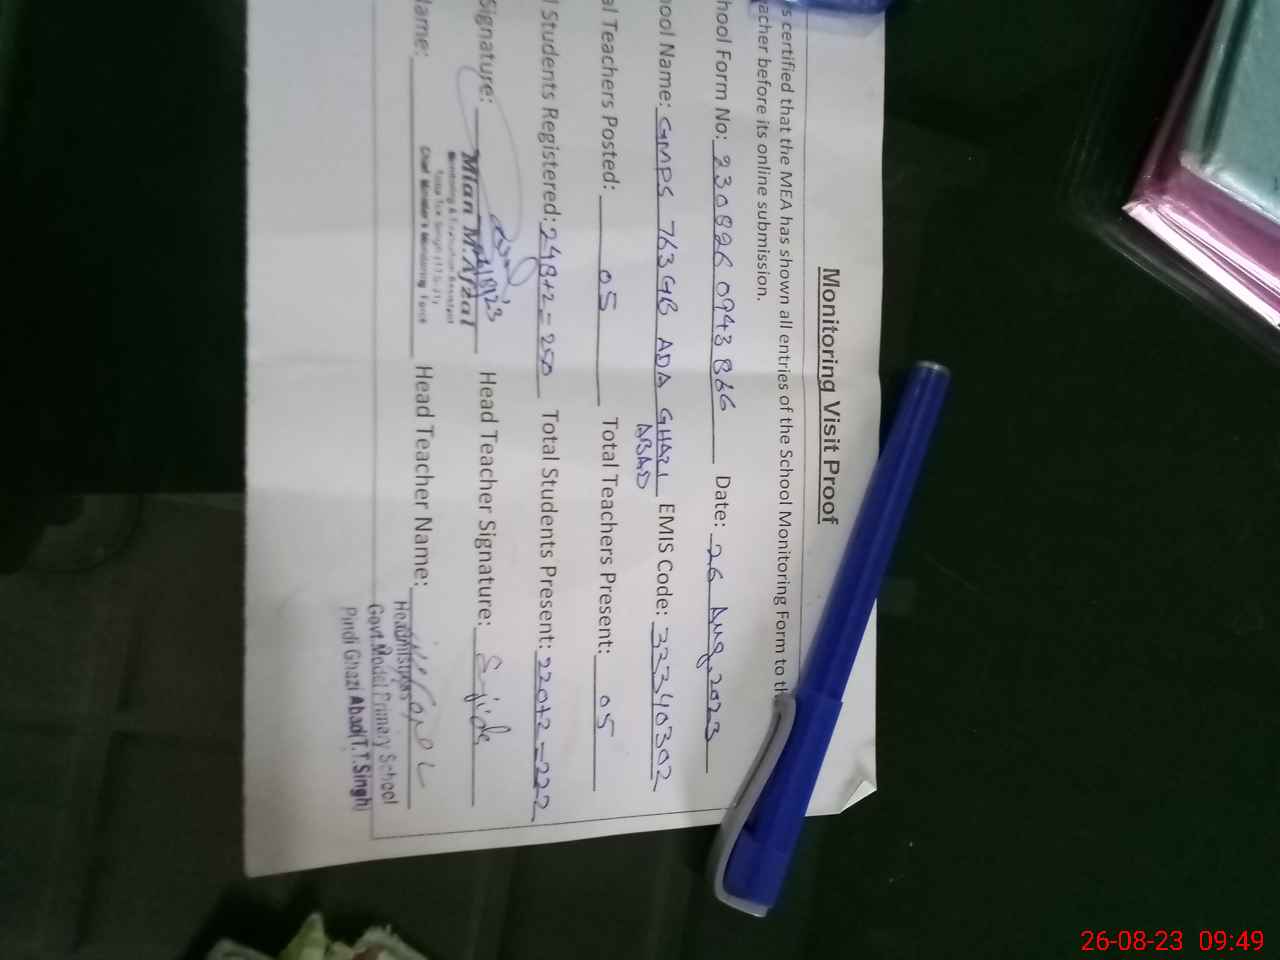 Monitoring Visit Proof
s certified that the MEA has shown all entries of the School Monitoring Form to th
acher before its online submission.
hool Form No: 230826 0943866 Date: 26 Aug, 2023
hool Name: GMPS 763 GB ADA GHAZI ABAD EMIS Code: 33340302
al Teachers Posted: 05 Total Teachers Present: 05
l Students Registered: 248+2=250 Total Students Present: 220+2=222
Signature: Head Teacher Signature: Sajida
Mian M. Afzal
Monitoring & Evaluation Assistant
Toba Tek Singh (T.T.S-11)
Chief Minister's Monitoring Force
Name: Head Teacher Name:
Headmistress
Govt. Model Primary School
Pindi Ghazi Abad (T.T.Singh)
26-08-23 09:49